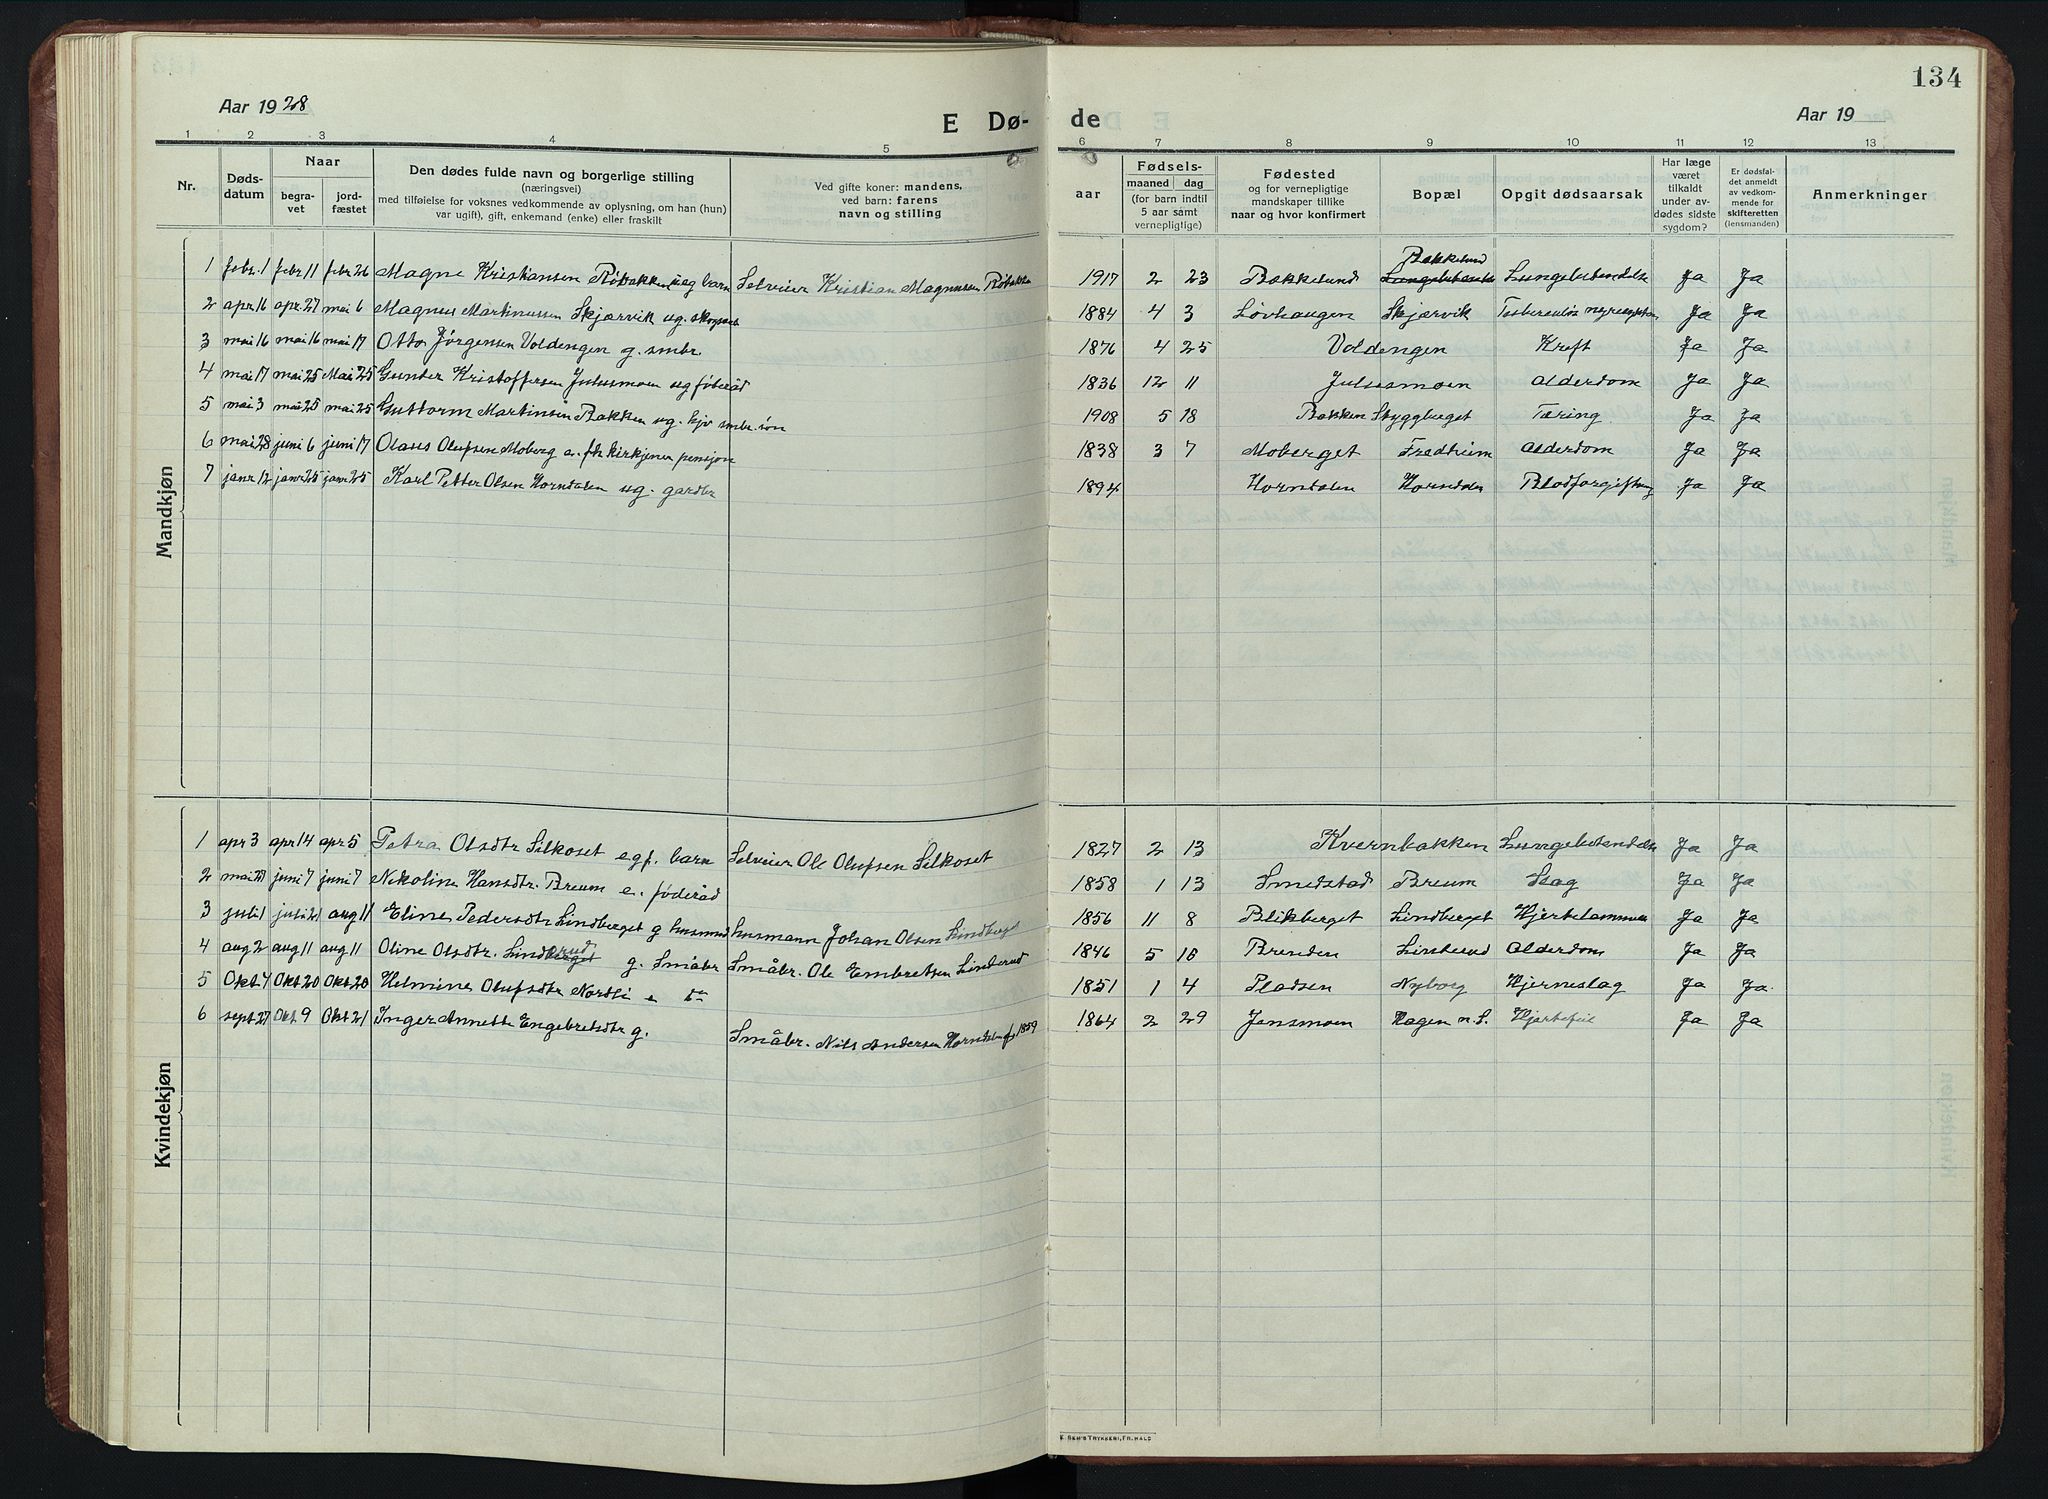 134
Aar 1928
E Dø-
de
Aar 19
1 2 3 4 5 6 7 8 9 10 11 12 13
Nr.
Døds-
datum
Naar
begra-
vet
jord-
fæstet
Den dødes fulde navn og borgerlige stilling
(næringsvei)
med tilføielse for voksnes vedkommende av oplysning, om han (hun)
var ugift), gift, enkemand (enke) eller fraskilt
Ved gifte koner: mandens,
ved barn: farens
navn og stilling
aar
Fødsels-
maaned dag
(for barn indtil
5 aar sâmt
vernepligtige)
Fødested
og for vernepligtige
mandskaper tillike
naar og hvor konfirmert
Bopæl
Opgit dødsaarsak
Har læge
været
tilkaldt
under av-
dødes sidste
sygdom?
Er dødsfal-
det anmeldt
av vedkom-
mende for
skifteretten
(lensmanden)
Anmerkninger
Mandkjøn
1 febr. 1 febr 11 febr 26 Magne Kristiansen Röbakken ug barn Selveier Kristian Magnussen 1917 2 23 Bakkelund Bakkelund Lungebetendelse Ja Ja
2 apr 16 apr. 27 mai 6 Magnus Martinussen Skjærvik ug. 1884 4 3 Lövhaugen Skjærvik Ja Ja
3 mai 16 mai 16 mai 17 Otto Jörgensen Voldengen g. smbr. 1876 4 25 Voldengen Kreft Ja Ja
4 mai 17 mai 25 Mai 25 Gunder Kristoffersen Julusmoen ug föderåd 1836 12 11 Julusmoen Alderdom Ja Ja
5 mai 3 mai 25 mai 25 Guttorm Martinsen Bakken ug. smbr. sön 1908 5 18 Bakken Skyggberget Tæring Ja Ja
6 mai 28 juni 6 juni 17 Olaus Olufsen Moberg 1838 3 7 Moberget Fredheim Alderdom Ja Ja
7 janr 12 janr 25 janr 25 Karl Petter Olsen Horndalen ug. gardbr 1894 Horndalen Horndalen Blodforgiftning Ja Ja
Kvindekjøn
1 apr 3 apr 14 apr 5 Petra Olsdtr Silkoset egf. barn Selveier Ole Olufsen Silkoset 1827 2 13 Kvernbakken Lungebetendelse Ja Ja
2 mai 27 juni 7 juni 7 Nikoline Hansdtr. Breum e. föderåd 1858 1 13 Smedstad Breum Slag Ja Ja
3 juli 1 juli 21 aug 11 Eline Pedersdtr Lindberget g husmand husmann Johan Olsen Lindberget 1856 11 8 Blikberget Lindberget Hjertelammelse Ja Ja
4 aug 2 aug 11 aug 11 Oline Olsdtr. Linderud g. Småbr Småbr. Ole Embretsen Linderud 1846 5 10 Brenden Linderud Alderdom Ja Ja
5 Okt 7 Okt 20 Okt 20 Helmine Olufsdtr Nordli e 1851 1 4 Pladsen Nyborg Hjerneslag Ja Ja.
6 sept 27 Okt 9 Okt 21 Inger Annette Engebretsdtr g. Småbr. Nils Andersen 1859 1864 2 29 Jensmoen Hagen n. S. Hjertefeil Ja Ja